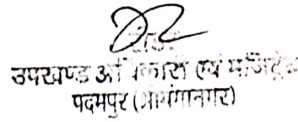 उपखण्ड अधिकारी एवं मजिस्ट्रेट
पदमपुर (श्रीगंगानगर)